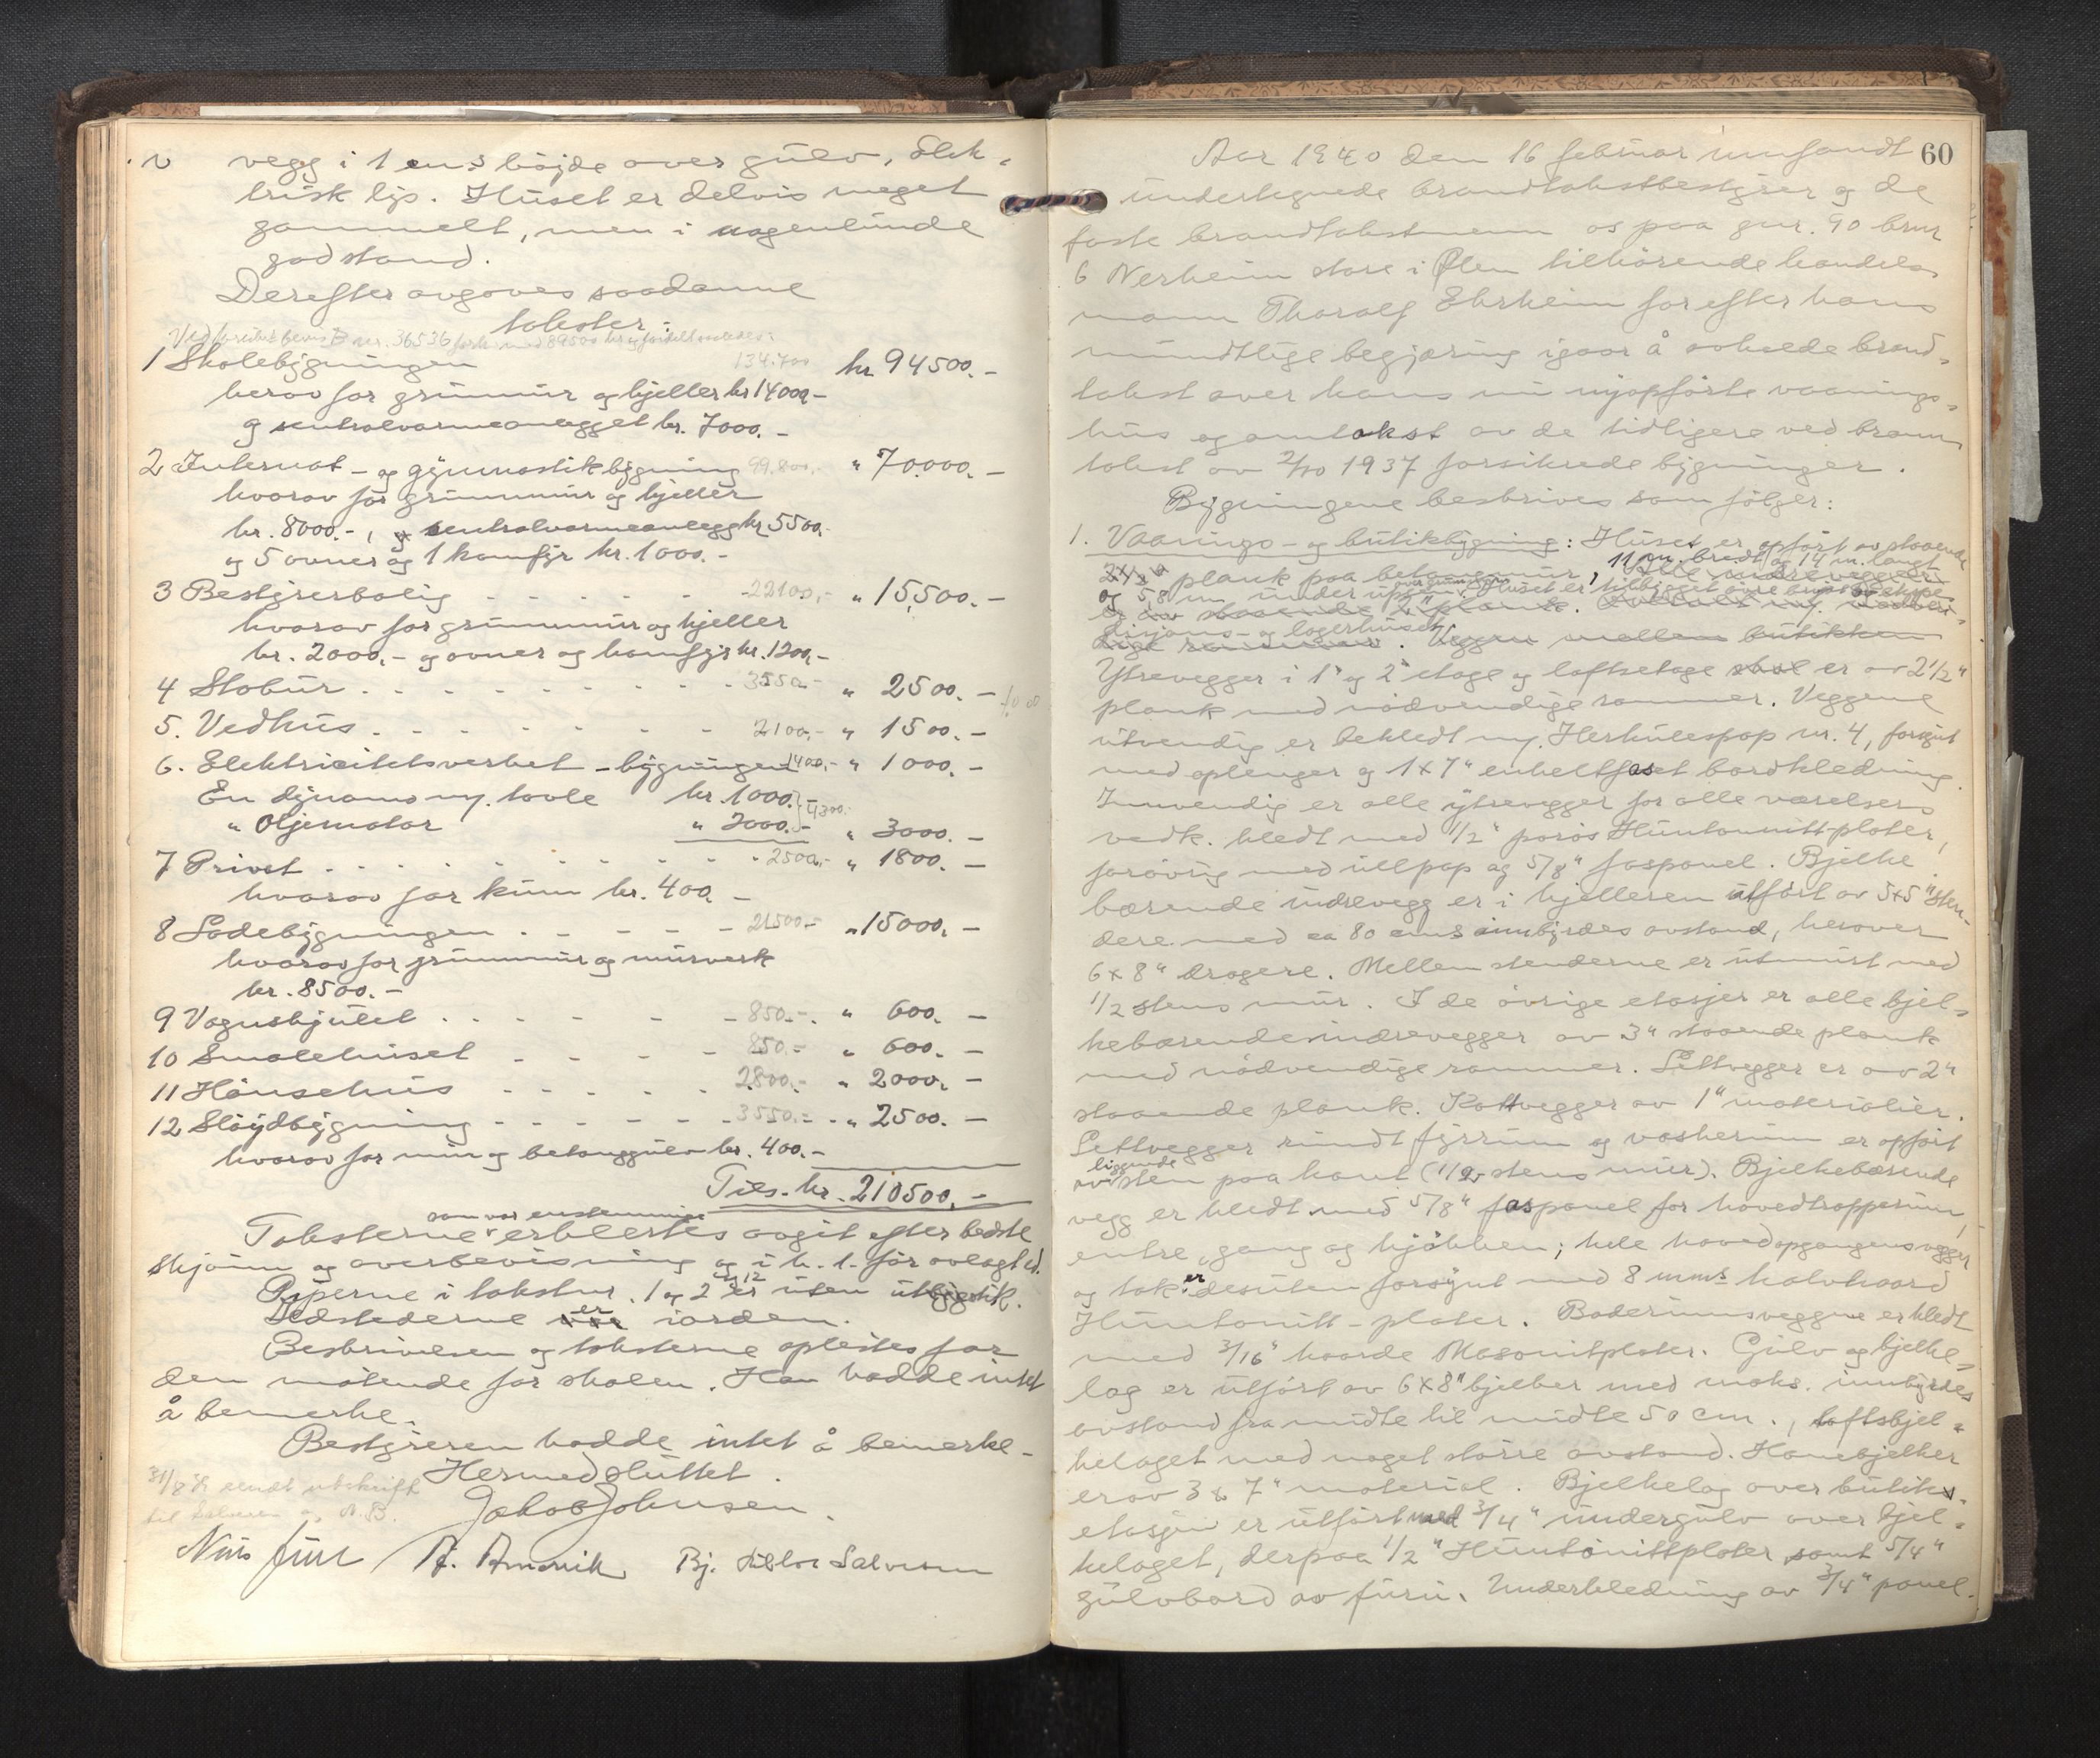 vegg i 1 em's höjde over gulv, elek-
trisk lys. Huset er delvis meget
gammelt, men i nogenlunde
god stand.
Derefter avgaves saadanne
takster:
1 Skolebygningen 134.700 kr. 94500.-
herav for grunmur og kjeller kr 14000,-
og sentralvarmeanlegget kr. 7000.-
2 Internat- og gymnastikbygning 99.800,- " 70.000.-
hvorav for grunnmur og kjeller
kr. 8000.-, og sentralvarmeanlegg kr 5500,-
og 5 ovner og 1 komfyr kr. 1000.-
3 Bestyrerbolig - - - - - 22100,- " 15,500.-
hvorav for grunmur og kjeller
kr. 2000,- og ovner og komfyr kr. 1200,-
4 Stabur . . . . . . . . 3550.- " 2500.-
5. Vedhus . - - - - - - - 2100,- " 1500.-
6. Elektricitetsverket - bygningen 1400,- " 1000.-
En dynamo m/. tavle kr. 1000.- } 4300.-
" Oljemotor " 2000.- " 3000.-
7 Privet . . . . . . . . 2500,- " 1800.-
hvorav for kum kr. 400,-
8 Ladebygningen . - - - - 21500.- " 15000.-
hvorav for grunnmur og murverk
kr. 8500.-
9 Vognskjulet . . - - - - 850.-. " 600.-
10 Smalehuset - - - - - 850.- " 600.-
11 Hönsehus - - - - - 2800.- " 2000.-
12 Slöydbygning - - - - - - 3550.- - " 2500.-
hvorav for mur og betonggulv kr. 400.-
Tils. kr. 210500.-
som var enstemmige
Taksterne erklertes avgit efter bedste
skjönn og overbevisning og i h. t. för avlagt ed.
og 12
Piperne i takstnr. 1 og 2 er uten utbygstik.
Ildstederne er i orden.
Beskrivelsen og taksterne oplestes for
den mötende for skolen. Han hadde intet
å bemerke.
Bestyreren hadde intet å bemerke.
Hermed sluttet.
31/8 sendt utskrift
Jakob Johnsen.
60
Aar 1940 den 16 februar innfandt
undertegnede brandtakstbestyrer og de
faste brandtakstmenn os paa gnr. 90 brnr
6 Nerheim store i Ølen tilhörende handels-
mann Tharalf Ehrheim for efter hans
mundtlige begjæring igaar å avholde brand-
takst over hans nu nyopförte vaanings-
hus og omtakst av de tidligere ved brann-
takst av 2/10 1937 forsikrede bygninger.
Bygningene beskrives som fölger:
1. Vaanings- og butikbygning: Huset er opfört av staaende
plank paa betongmur, 11 m. bredt og 14 m. langt
og 5,8 m under Huset er tilbygget
og lagerhuset. Veggen mellem butikken
Ytrevegger i 1' og 2' etage og loftsetage er av 2 1/2"
plank med nödvendige rammer. Veggene
utvendig er bekledt m/. Herkulespap nr. 4, forsynt
med oplenger og 1 x 7" enkeltfaset bordkledning.
Innvendig er alle ytrevegger for alle værelsers
vedk. kledt med 1/2" porös Huntonnitt-plater,
forövrig med ullpap og 5/8" faspanel. Bjelke
bærende indrevegg er i kjelleren utfört av 5x5" sten-
dere med ca 80 cm's innbyrdes avstand, herover
6 x 8" dragere. Mellem stenderne er utmurt med
1/2 stens mur. I de övrige etasjer er alle bjel-
kebærende indrevegger av 3" staaende plank
med nödvendige rammer. Lettvegger er av 2"
staaende plank. Kottvegger av 1" materialier.
Lettvegger rundt fyrrum og vaskerum er opfört
liggende
av sten paa kant (1/2 stens mur). Bjelkebærende
vegg er kledt med 5/8" faspanel for hovedtrapperum,
entre, gang og kjökken; hele hovedopgangens vegger
og tak er desuten forsynt med 8 mm's halvhaard
Huntonitt-plater. Baderumsveggne er kledt
med 3/16" haarde Masonitplater. Gulv og bjelke-
lag er utfört av 6 x 8" bjelker med maks. innbyrdes
avstand fra midte til midte 50 cm., loftsbjel-
kelaget med noget större avstand. Hanebjelker
er av 3 x 7" material. Bjelkelag over butiks-
etasjen er utfört med 3/4" undergulv over bjel-
kelaget, derpaa 1/2" Huntonittplater samt 5/4"
gulvbord av furu. Underkledning av 3/4" panel.